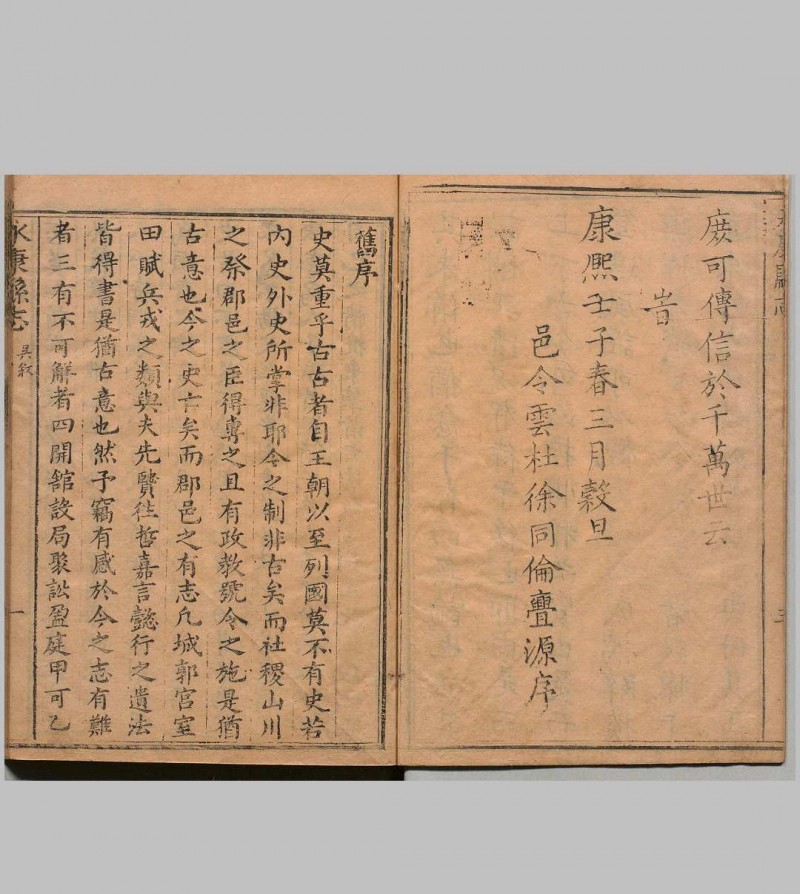 庶可傳信於千萬世云
旹
康熙壬子春三月穀旦
邑令雲杜徐同倫亹源序
舊序
史莫重乎古古者自王朝以至列國莫不有史若
內史外史所掌非耶今之制非古矣而社稷山川
之祭郡邑之臣得專之且有政教號令之施是猶
古意也今之史亡矣而郡邑之有志凡城郭宮室
田賦兵戎之類與夫先賢徃哲嘉言懿行之遺法
皆得書是猶古意也然予竊有感於今之志有難
者三有不可解者四開舘設局聚訟盈庭甲可乙
永康縣志
吳敘
一